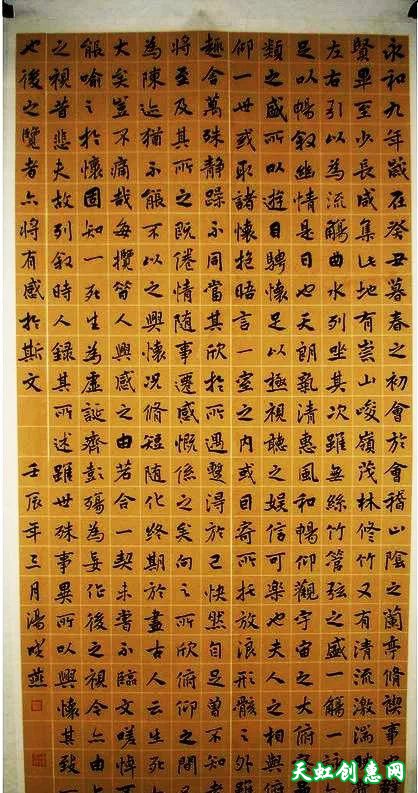 永和九年歲在癸丑暮春之初會於會稽山陰之蘭亭脩禊事
賢畢至少長咸集此地有崇山峻嶺茂林修竹又有清流激湍
左右引以為流觴曲水列坐其次雖無絲竹管弦之盛一觴一詠
足以暢敘幽情是日也天朗氣清惠風和暢仰觀宇宙之大俯察
類之盛所以遊目騁懷足以極視聽之娛信可樂也夫人之相與俯
仰一世或取諸懷抱晤言一室之內或因寄所托放浪形骸之外雖
趣舍萬殊靜躁不同當其欣於所遇暫得於己快然自足曾不知
將至及其所之既倦情隨事遷感慨係之矣向之所欣俯仰之間
為陳迹猶不能不以之興懷況脩短隨化終期於盡古人云生死
大矣豈不痛哉每攬昔人興感之由若合一契未嘗不臨文嗟悼
能喻之於懷固知一死生為虛誕齊彭殤為妄作後之視今亦由
之視昔悲夫故列敘時人錄其所述雖世殊事異所以興懷其致
也後之覽者亦將有感於斯文
壬辰年三月湯成燕
天虹创意网